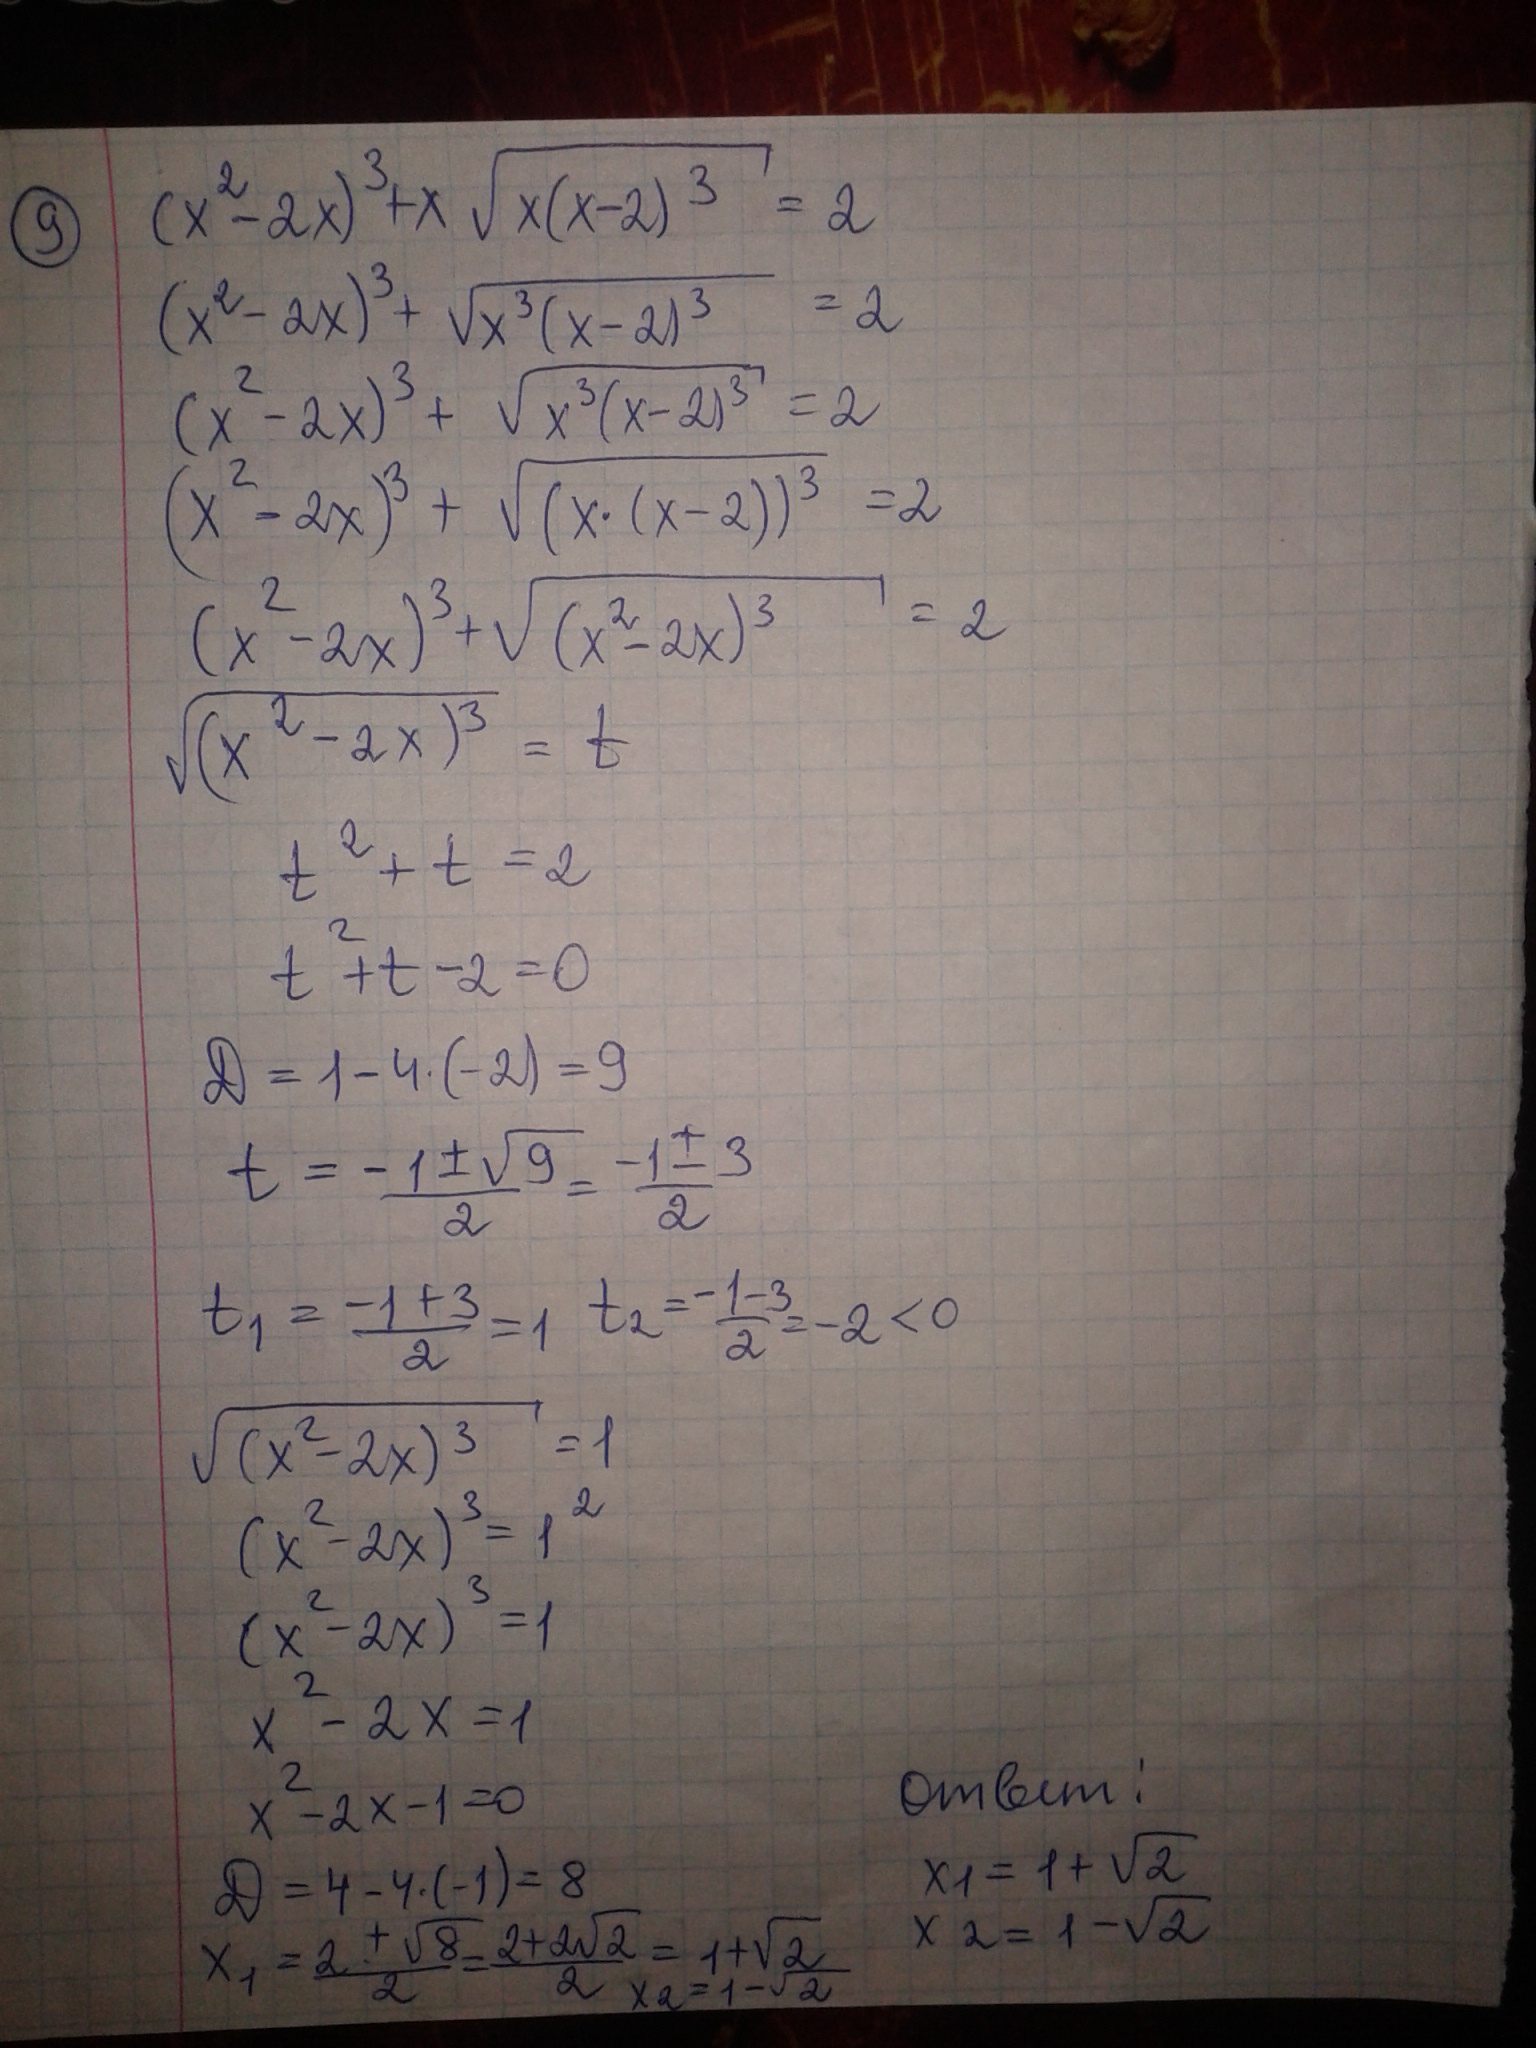 9 (x²-2x)³+x√(x(x-2)³) = 2
(x²-2x)³+√(x³(x-2)³) = 2
(x²-2x)³+√(x³(x-2)³) = 2
(x²-2x)³+√((x·(x-2))³) = 2
(x²-2x)³+√((x²-2x)³) = 2
√((x²-2x)³) = t
t²+t = 2
t²+t-2=0
D = 1-4·(-2) = 9
t = (-1±√9)/2 = (-1±3)/2
t₁ = (-1+3)/2 = 1 t₂ = (-1-3)/2 = -2 < 0
√((x²-2x)³) = 1
(x²-2x)³ = 1²
(x²-2x)³ = 1
x²-2x = 1
x²-2x-1=0
D = 4-4·(-1) = 8
x₁ = (2±√8)/2 = (2+2√2)/2 = 1+√2
x2 = 1-√2
Ответ:
x1 = 1+√2
x2 = 1-√2